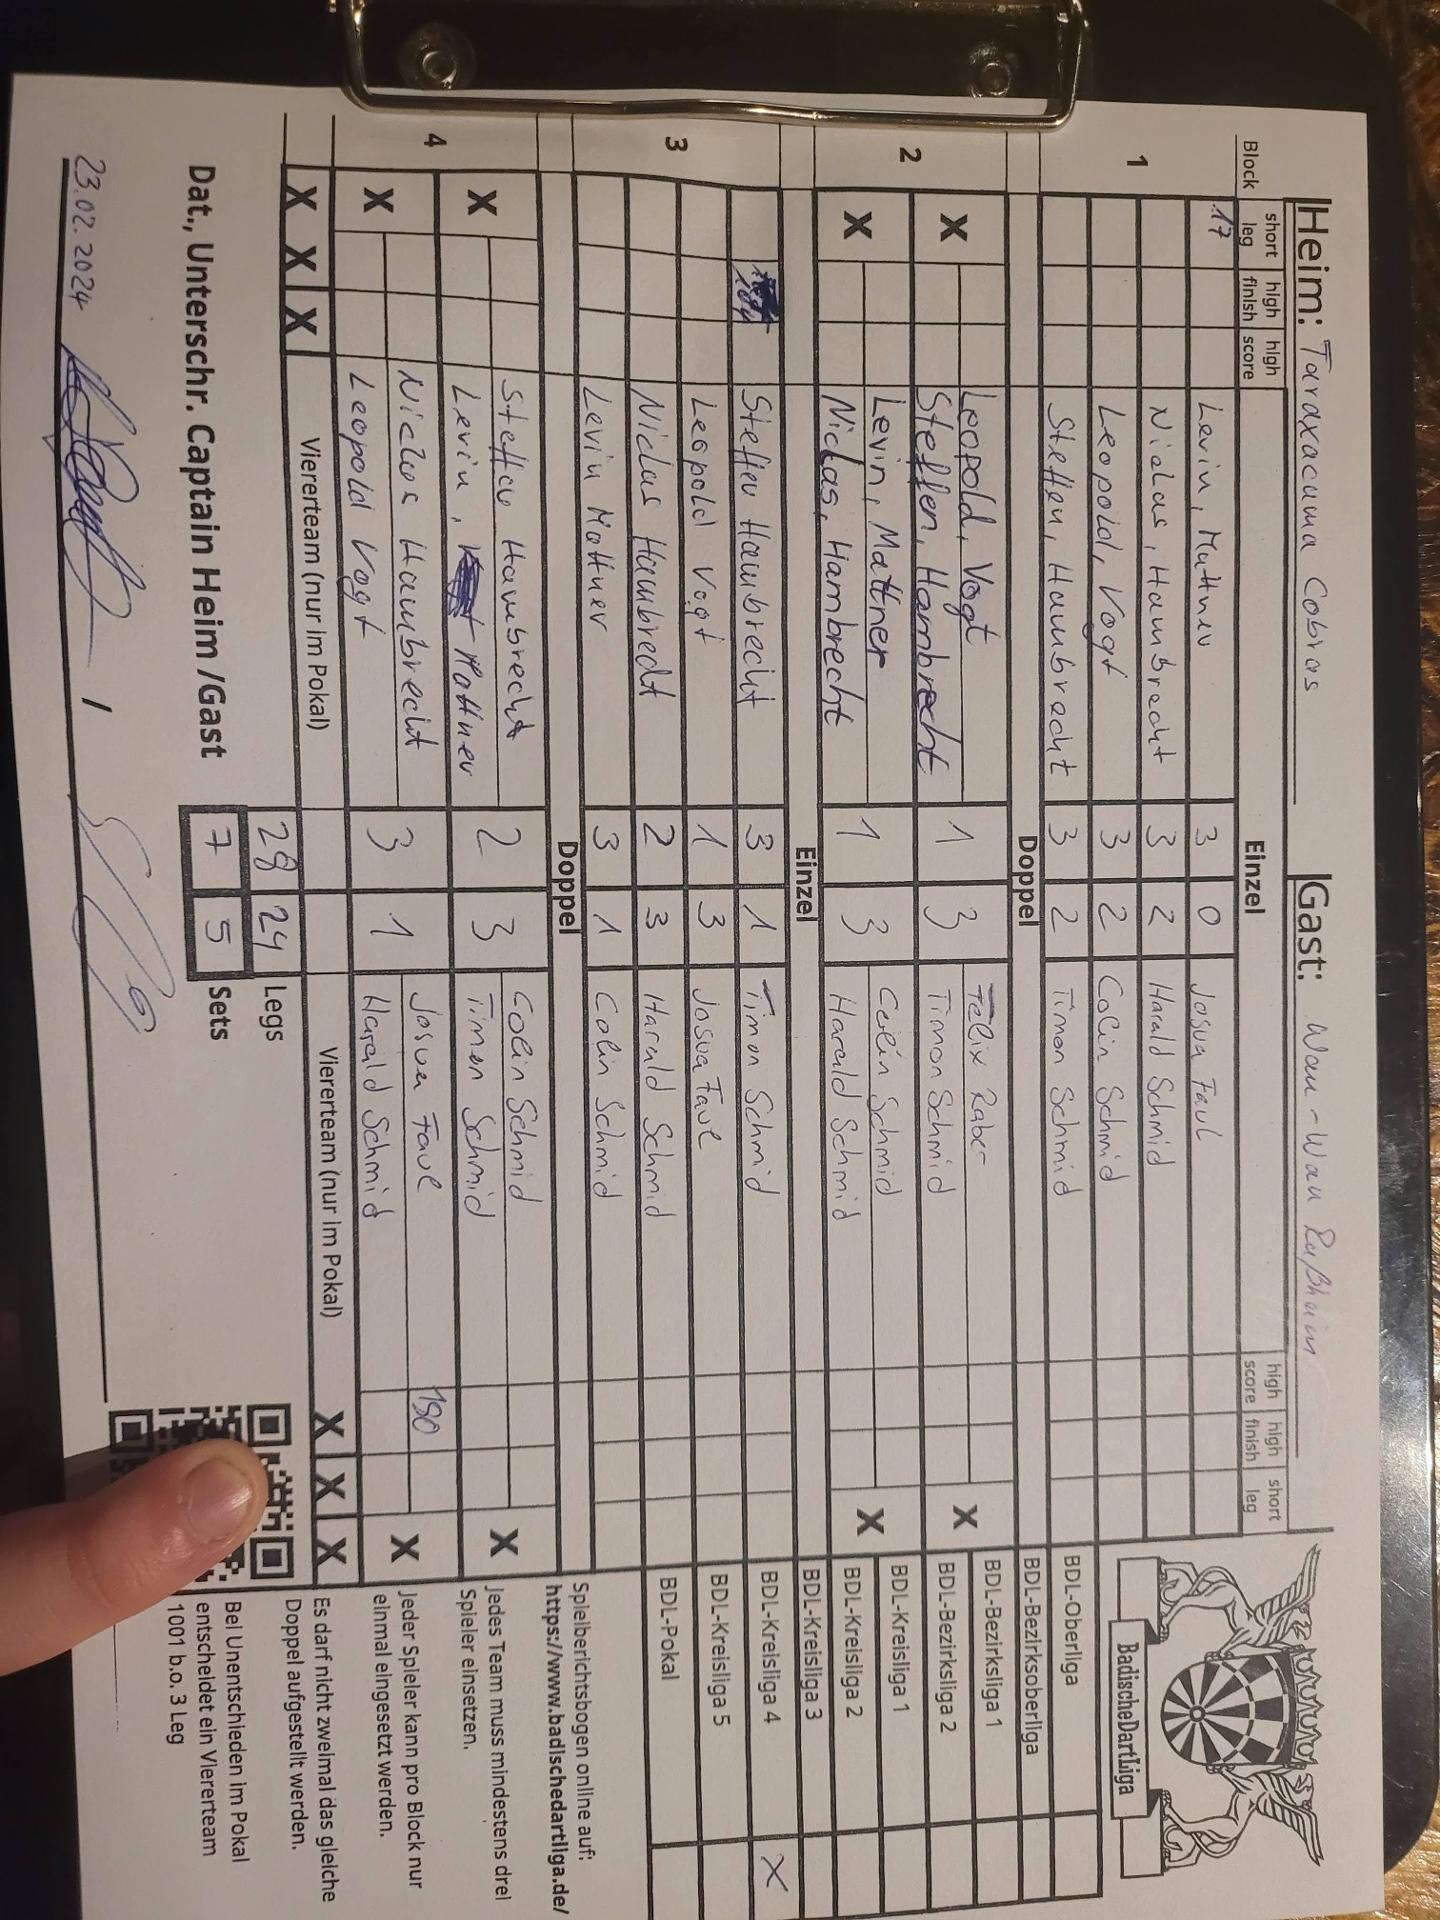 Heim: Taraxacuma Cobras Gast: Wau-Wau Rußheim
Block short leg high finish high score Einzel high score high finish short leg
1
17 Levin, Mattner 3 0 Josua Faul
Niclas, Hambrecht 3 2 Harald Schmid
Leopold, Vogt 3 2 Colin Schmid
Steffen, Hambrecht 3 2 Timon Schmid
Doppel
2
X Leopold, Vogt 1 3 Felix Raber X
Steffen, Hambrecht Timon Schmid
X Levin, Mattner 1 3 Colin Schmid X
Niclas, Hambrecht Harald Schmid
Einzel
3
104 Steffen Hambrecht 3 1 Timon Schmid
Leopold Vogt 1 3 Josua Faul
Niclas Hambrecht 2 3 Harald Schmid
Levin Mattner 3 1 Colin Schmid
Doppel
4
X Steffen Hambrecht 2 3 Colin Schmid X
Levin, Mattner Timon Schmid
X Niclas Hambrecht 3 1 Josua Faul 180 X
Leopold Vogt Harald Schmid
X X X Viererteam (nur im Pokal) Viererteam (nur im Pokal) X X X
28 24 Legs
Dat., Unterschr. Captain Heim /Gast 7 5 Sets
23.02.2024 /
BadischeDartLiga
BDL-Oberliga
BDL-Bezirksoberliga
BDL-Bezirksliga 1
BDL-Bezirksliga 2
BDL-Kreisliga 1
BDL-Kreisliga 2
BDL-Kreisliga 3
BDL-Kreisliga 4 X
BDL-Kreisliga 5
BDL-Pokal
Spielberichtsbogen online auf:
https://www.badischedartliga.de/
Jedes Team muss mindestens drei
Spieler einsetzen.
Jeder Spieler kann pro Block nur
einmal eingesetzt werden.
Es darf nicht zweimal das gleiche
Doppel aufgestellt werden.
Bei Unentschieden im Pokal
entscheidet ein Viererteam
1001 b.o. 3 Leg